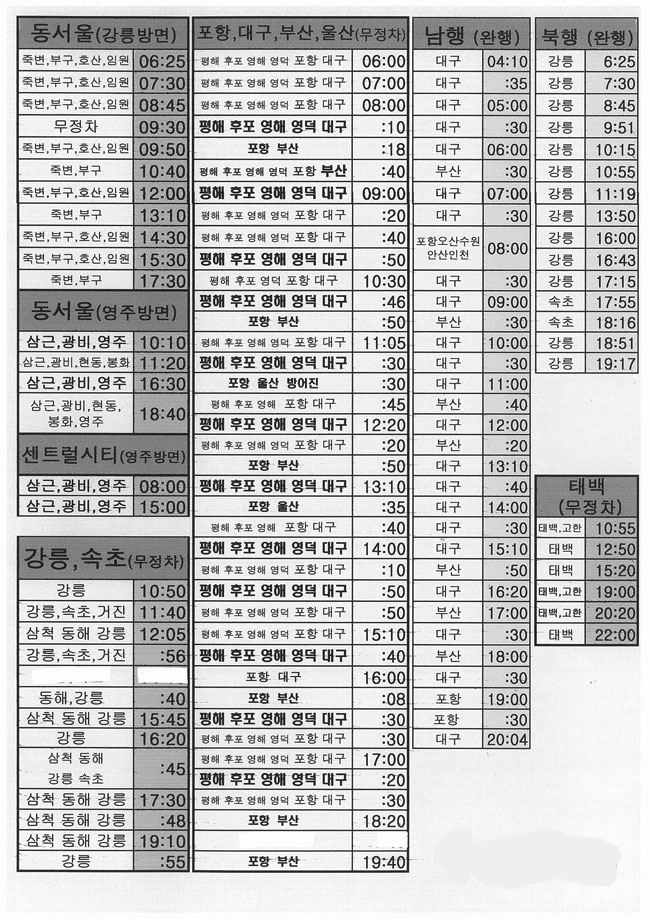 동서울(강릉방면)
죽변,부구,호산,임원 06:25
죽변,부구,호산,임원 07:30
죽변,부구,호산,임원 08:45
무정차 09:30
죽변,부구,호산,임원 09:50
죽변,부구 10:40
죽변,부구,호산,임원 12:00
죽변,부구 13:10
죽변,부구,호산,임원 14:30
죽변,부구,호산,임원 15:30
죽변,부구 17:30
동서울(영주방면)
삼근,광비,영주 10:10
삼근,광비,현동,봉화 11:20
삼근,광비,영주 16:30
삼근,광비,현동,
봉화,영주 18:40
센트럴시티(영주방면)
삼근,광비,영주 08:00
삼근,광비,영주 15:00
강릉,속초(무정차)
강릉 10:50
강릉,속초,거진 11:40
삼척 동해 강릉 12:05
강릉,속초,거진 :56
동해,강릉 :40
삼척 동해 강릉 15:45
강릉 16:20
삼척 동해
강릉 속초 :45
삼척 동해 강릉 17:30
삼척 동해 강릉 :48
삼척 동해 강릉 19:10
강릉 :55
포항,대구,부산,울산(무정차)
평해 후포 영해 영덕 포항 대구 06:00
평해 후포 영해 영덕 포항 대구 07:00
평해 후포 영해 영덕 포항 대구 08:00
평해 후포 영해 영덕 대구 :10
포항 부산 :18
평해 후포 영해 영덕 포항 부산 :40
평해 후포 영해 영덕 대구 09:00
평해 후포 영해 영덕 포항 대구 :20
평해 후포 영해 영덕 포항 대구 :40
평해 후포 영해 영덕 대구 :50
평해 후포 영덕 포항 대구 10:30
평해 후포 영해 영덕 대구 :46
포항 부산 :50
평해 후포 영해 영덕 포항 대구 11:05
평해 후포 영해 영덕 대구 :30
포항 울산 방어진 :30
평해 후포 영해 포항 대구 :45
평해 후포 영해 영덕 대구 12:20
평해 후포 영해 영덕 포항 대구 :20
포항 부산 :50
평해 후포 영해 영덕 대구 13:10
포항 울산 :35
평해 후포 영해 포항 대구 :40
평해 후포 영해 영덕 대구 14:00
평해 후포 영해 영덕 포항 대구 :10
평해 후포 영해 영덕 대구 :50
평해 후포 영해 영덕 포항 대구 :50
평해 후포 영해 영덕 포항 대구 15:10
평해 후포 영해 영덕 대구 :40
포항 대구 16:00
포항 부산 :08
평해 후포 영해 영덕 대구 :30
평해 후포 영해 영덕 포항 대구 :30
평해 후포 영해 영덕 포항 대구 17:00
평해 후포 영해 영덕 대구 :20
평해 후포 영해 영덕 포항 대구 :30
포항 부산 18:20
포항 부산 19:40
남행 (완행)
대구 04:10
대구 :35
대구 05:00
대구 :30
대구 06:00
부산 :30
대구 07:00
대구 :30
포항오산수원
안산인천 08:00
대구 :30
대구 09:00
부산 :30
대구 10:00
대구 :30
대구 11:00
부산 :40
대구 12:00
부산 :20
대구 13:10
대구 :40
대구 14:00
대구 :30
대구 15:10
부산 :50
대구 16:20
부산 17:00
대구 :30
부산 18:00
대구 :30
포항 19:00
포항 :30
대구 20:04
북행 (완행)
강릉 6:25
강릉 7:30
강릉 8:45
강릉 9:51
강릉 10:15
강릉 10:55
강릉 11:19
강릉 13:50
강릉 16:00
강릉 16:43
강릉 17:15
속초 17:55
속초 18:16
강릉 18:51
강릉 19:17
태백
(무정차)
태백,고한 10:55
태백 12:50
태백 15:20
태백,고한 19:00
태백,고한 20:20
태백 22:00